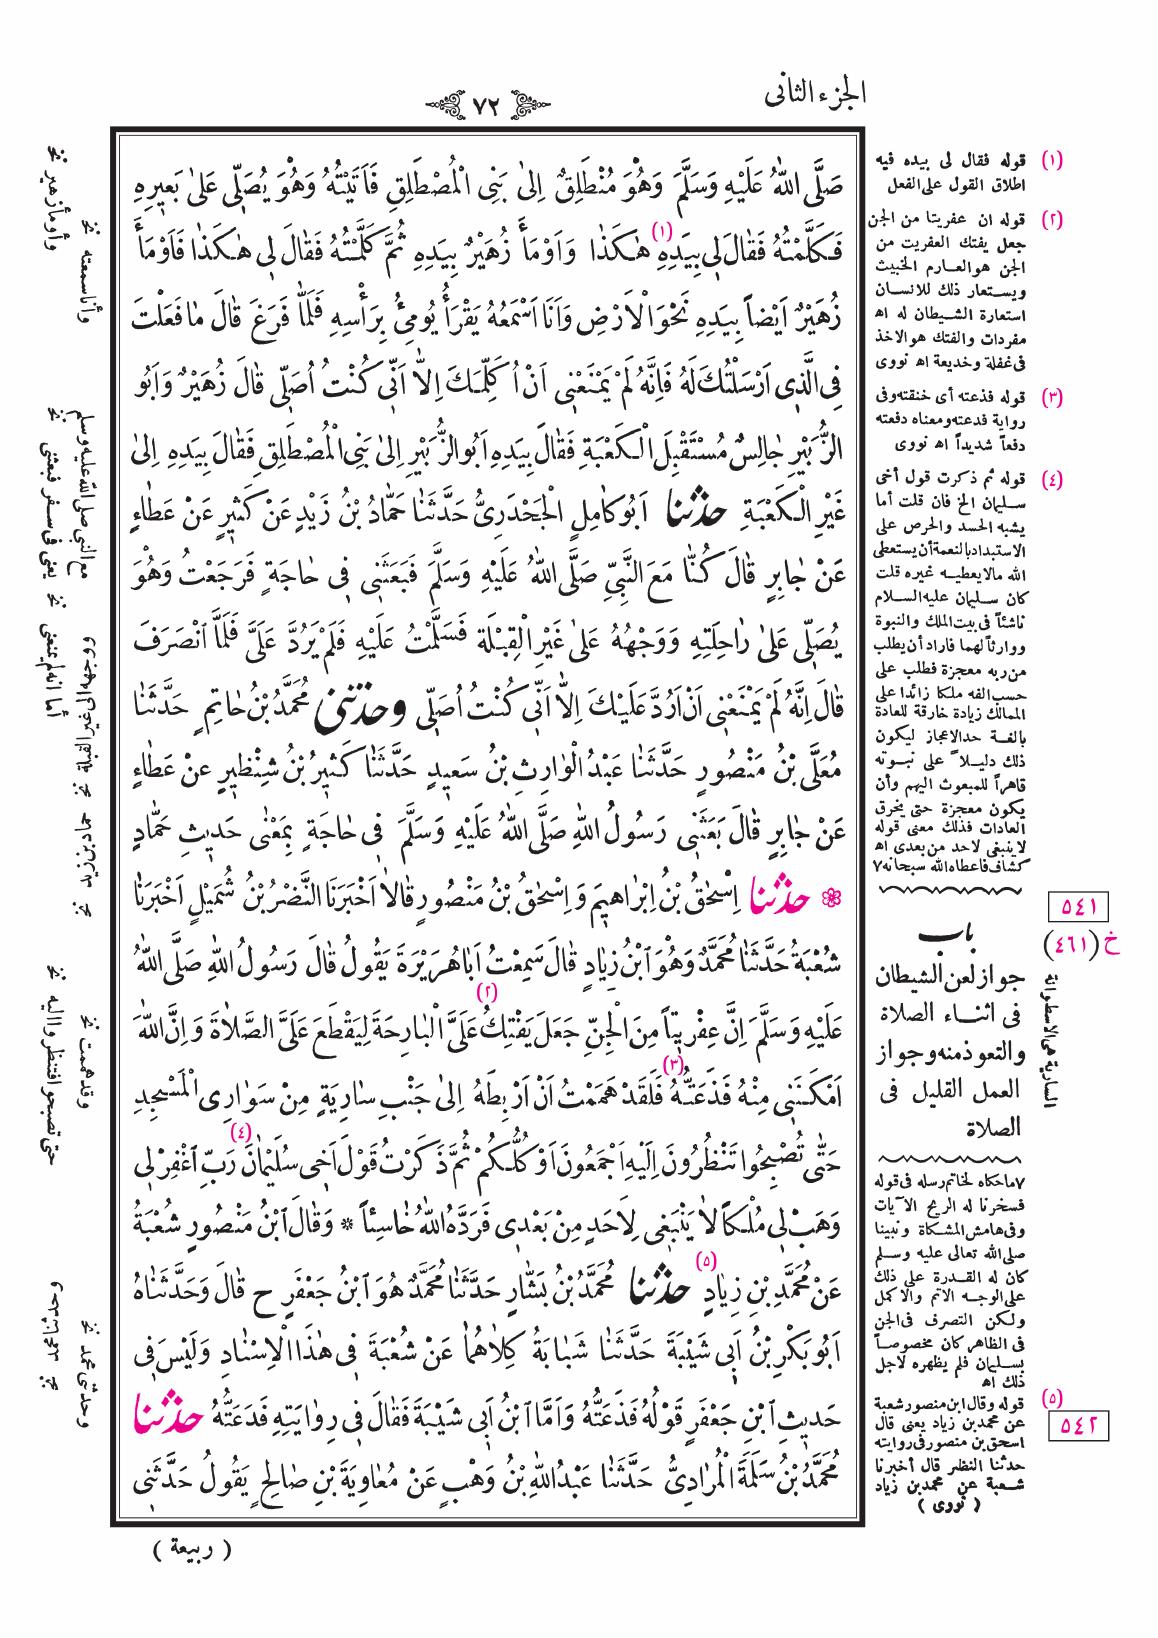 الجزء الثانى
٧٢
صَلَّى اللهُ عَلَيْهِ وَسَلَّمَ وَهُوَ مُنْطَلِقٌ اِلىٰ بَنِى الْمُصْطَلِقِ فَاَتَيْتُهُ وَهُوَ يُصَلِّى عَلىٰ بَعيرِهِ
فَكَلَّمْتُهُ فَقٰالَ لِى بِيَدِهِ (١) هٰكَذٰا وَاَوْمَأَ زُهَيْرٌ بِيَدِهِ ثُمَّ كَلَّمْتُهُ فَقٰالَ لِى هٰكَذٰا فَاَوْمَأَ
زُهَيْرٌ اَيْضاً بِيَدِهِ نَحْوَ الْاَرْضِ وَاَنَا اَسْمَعُهُ يَقْرَأُ يُومِئُ بِرَأْسِهِ فَلَمّٰا فَرَغَ قٰالَ مٰا فَعَلْتَ
فِى الَّذِى اَرْسَلْتُكَ لَهُ فَاِنَّهُ لَمْ يَمْنَعْنِى اَنْ اُكَلِّمَكَ اِلّٰا اَنِّى كُنْتُ اُصَلِّى قٰالَ زُهَيْرٌ وَاَبُو
الزُّبَيْرِ جٰالِسٌ مُسْتَقْبِلَ الْكَعْبَةِ فَقٰالَ بِيَدِهِ اَبُو الزُّبَيْرِ اِلىٰ بَنِى الْمُصْطَلِقِ فَقٰالَ بِيَدِهِ اِلىٰ
غَيْرِ الْكَعْبَةِ حدثنا اَبُو كٰامِلٍ الْجَحْدَرِىُّ حَدَّثَنٰا حَمّٰادُ بْنُ زَيْدٍ عَنْ كَثِيرٍ عَنْ عَطٰاءٍ
عَنْ جٰابِرٍ قٰالَ كُنّٰا مَعَ النَّبِيِّ صَلَّى اللهُ عَلَيْهِ وَسَلَّمَ فَبَعَثَنِى فِى حٰاجَةٍ فَرَجَعْتُ وَهُوَ
يُصَلِّى عَلىٰ رٰاحِلَتِهِ وَوَجْهُهُ عَلىٰ غَيْرِ الْقِبْلَةِ فَسَلَّمْتُ عَلَيْهِ فَلَمْ يَرُدَّ عَلَىَّ فَلَمَّا انْصَرَفَ
قٰالَ اِنَّهُ لَمْ يَمْنَعْنِى اَنْ اَرُدَّ عَلَيْكَ اِلّٰا اَنِّى كُنْتُ اُصَلِّى وحدثنى مُحَمَّدُ بْنُ حٰاتِمٍ حَدَّثَنٰا
مُعَلَّى بْنُ مَنْصُورٍ حَدَّثَنٰا عَبْدُ الْوٰارِثِ بْنُ سَعيدٍ حَدَّثَنٰا كَثيرُ بْنُ شِنْظيرٍ عَنْ عَطٰاءٍ
عَنْ جٰابِرٍ قٰالَ بَعَثَنِى رَسُولُ اللهِ صَلَّى اللهُ عَلَيْهِ وَسَلَّمَ فِى حٰاجَةٍ بِمَعْنٰى حَديثِ حَمّٰادٍ
❀ حدثنا اِسْحٰقُ بْنُ اِبْرٰاهيمَ وَاِسْحٰقُ بْنُ مَنْصُورٍ قٰالاٰ اَخْبَرَنَا النَّضْرُ بْنُ شُمَيْلٍ اَخْبَرَنٰا
شُعْبَةُ حَدَّثَنٰا مُحَمَّدٌ وَهُوَ ابْنُ زِيٰادٍ قٰالَ سَمِعْتُ اَبٰا هُرَيْرَةَ يَقُولُ قٰالَ رَسُولُ اللهِ صَلَّى اللهُ
عَلَيْهِ وَسَلَّمَ اِنَّ عِفْريتاً مِنَ الْجِنِّ جَعَلَ يَفْتِكُ (٢) عَلَىَّ الْبٰارِحَةَ لِيَقْطَعَ عَلَىَّ الصَّلاٰةَ وَاِنَّ اللهَ
اَمْكَنَنِى مِنْهُ فَذَعَتُّهُ (٣) فَلَقَدْ هَمَمْتُ اَنْ اَرْبِطَهُ اِلىٰ جَنْبِ سٰارِيَةٍ مِنْ سَوٰارِى الْمَسْجِدِ
حَتّٰى تُصْبِحُوا تَنْظُرُونَ اِلَيْهِ اَجْمَعُونَ اَوْ كُلُّكُمْ ثُمَّ ذَكَرْتُ قَوْلَ اَخِى سُلَيْمٰانَ (٤) رَبِّ اغْفِرْ لِى
وَهَبْ لِى مُلْكاً لاٰ يَنْبَغِى لِاَحَدٍ مِنْ بَعْدِى فَرَدَّهُ اللهُ خٰاسِئاً * وَقٰالَ ابْنُ مَنْصُورٍ شُعْبَةُ
عَنْ مُحَمَّدِ بْنِ زِيٰادٍ (٥) حدثنا مُحَمَّدُ بْنُ بَشّٰارٍ حَدَّثَنٰا مُحَمَّدٌ هُوَ ابْنُ جَعْفَرٍ ح قٰالَ وَحَدَّثَنٰاهُ
اَبُو بَكْرِ بْنُ اَبِى شَيْبَةَ حَدَّثَنٰا شَبٰابَةُ كِلاٰهُمٰا عَنْ شُعْبَةَ فِى هٰذَا الْاِسْنٰادِ وَلَيْسَ فِى
حَديثِ ابْنِ جَعْفَرٍ قَوْلُهُ فَذَعَتُّهُ وَاَمَّا ابْنُ اَبِى شَيْبَةَ فَقٰالَ فِى رِوٰايَتِهِ فَدَعَتُّهُ حدثنا
مُحَمَّدُ بْنُ سَلَمَةَ الْمُرٰادِىُّ حَدَّثَنٰا عَبْدُ اللهِ بْنُ وَهْبٍ عَنْ مُعٰاوِيَةَ بْنِ صٰالِحٍ يَقُولُ حَدَّثَنِى
( ربيعة )
(١) قوله فقال لى بيده فيه
اطلاق القول على الفعل
(٢) قوله ان عفريتا من الجن
جعل يفتك العفريت من
الجن هو العارم الخبيث
ويستعار ذلك للانسان
استعارة الشيطان له اه
مفردات والفتك هو الاخذ
فى غفلة وخديعة اه نووى
(٣) قوله فذعته أى خنقته وفى
رواية فدعته ومعناه دفعته
دفعاً شديداً اه نووى
(٤) قوله ثم ذكرت قول أخى
سليمان الخ فان قلت أما
يشبه الحسد والحرص على
الاستبداد بالنعمة أن يستعطى
الله مالا يعطيه غيره قلت
كان سليمان عليه السلام
ناشئاً فى بيت الملك والنبوة
ووارثاً لهما فاراد أن يطلب
من ربه معجزة فطلب على
حسب الفه ملكا زائدا على
الممالك زيادة خارقة للعادة
بالغة حد الاعجاز ليكون
ذلك دليلاً على نبوته
قاهراً للمبعوث اليهم وأن
يكون معجزة حتى يخرق
العادات فذلك معنى قوله
لا ينبغى لاحد من بعدى اه
كشاف فاعطاه الله سبحانه ٧
٥٤١
خ (٤٦١)
باب
جواز لعن الشيطان
فى اثناء الصلاة
والتعوذ منه وجواز
العمل القليل فى
الصلاة
السارية هى الاسطوانة
٧ ما حكاه لخاتم رسله فى قوله
فسخرنا له الريح الآيات
وفى هامش المشكاة ونبينا
صلى الله تعالى عليه وسلم
كان له القدرة على ذلك
على الوجه الاتم والاكمل
ولكن التصرف فى الجن
فى الظاهر كان مخصوصاً
بسليمان فلم يظهره لاجل
ذلك اه
(٥) قوله وقال ابن منصور شعبة
عن محمد بن زياد يعنى قال
اسحق بن منصور فى روايته
حدثنا النظر قال أخبرنا
شعبة عن محمد بن زياد
( نووى )
٥٤٢
وأومأ زهير نخ
وأنا سمعته نخ
مع النبى صلى الله عليه وسلم
نخ يعنى فى سفر فبعثنى نخ
أما انه لم يمنعنى
وقد هممت نخ
حتى تصبحوا فتنظروا اليه نخ
وحدثنى محمد نخ